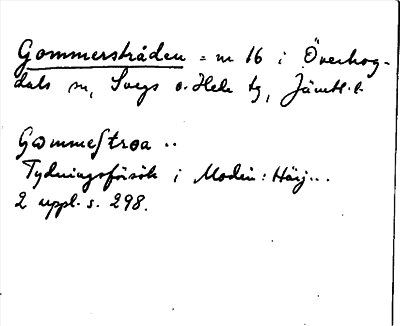 Gommersträden = nr 16 i Överhog-
dals sn, Svegs o. Hede tg, Jämtl. l.
Gommestroa ..
Tydningsförsök i Modin: Härj...
2 uppl. s. 298.